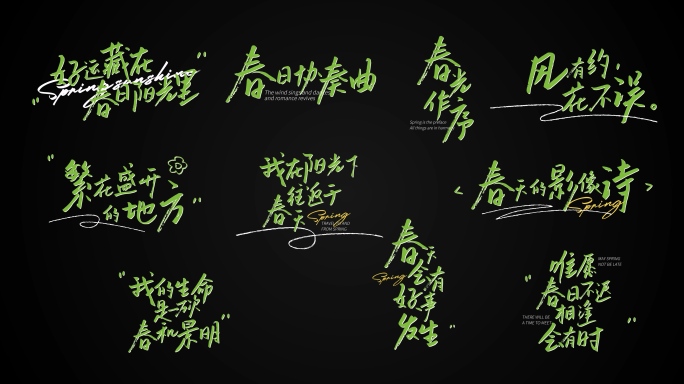 “好运藏在
春日阳光里”
Spring sunshine
春日协奏曲
The wind sings and dances
and romance revives
春光
作序
Spring is the preface
All things are in harmony
风有约，
花不误。
“繁花盛开
的地方”
我在阳光下
往返于
春天
Spring
TRAVEL TO AND
FROM SPRING
<春天的影像诗>
Spring
“我的生命
是一场
春和景明”
春天
会有
好事
发生”
Spring
“唯愿
春日不迟
相逢
会有时”
MAY SPRING
NOT BE LATE
THERE WILL BE
A TIME TO MEET